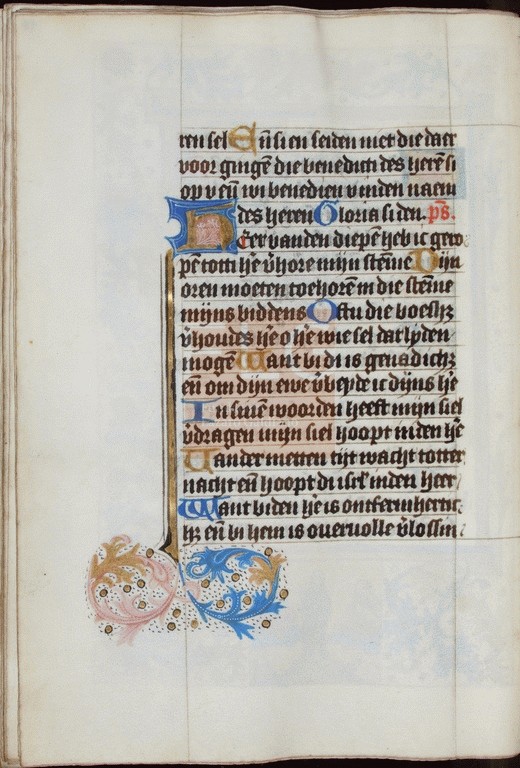 ren sel En̄ si en seiden niet die daer
voor gingē die benedicti des herē si
op v en̄ wi benedien v inden naem
des heren Gloria si den. ps̄.
Her vanden diepē heb ic gero
pē tot ti hē v̄hore mijn stēme Dijn
oren moeten toehorē in die stēme
mijns biddens Oftu die boeshꝫ
v̄houdes hē o hē wie sel dat lyden
mogē Want bi di is genadichꝫ
en̄ om dijn ewe v̄beyde ic dijns hē
In sinē woorden heeft mijn siel
v̄dragen mijn siel hoopt in den hē
Vander metten tijt wacht totter
nacht en̄ hoopt di isrl' inden heer
Want biden hē is ontfermhertic
hꝫ en̄ bi hem is overvolle v̄lossin